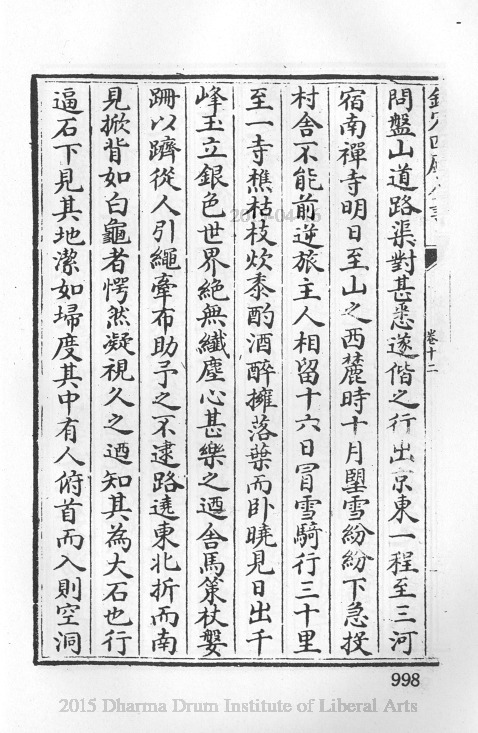 欽定四庫全書
卷十二
問盤山道路渠對甚悉遂偕之行出京東一程至三河
宿南禪寺明日至山之西麓時十月朢雪紛紛下急投
村舍不能前逆旅主人相留十六日冐雪騎行三十里
至一寺樵枯枝炊黍酌酒醉擁落葉而卧曉見日出千
峰玉立銀色世界絶無纎塵心甚樂之迺舍馬策杖媻
跚以躋從人引繩牽布助予之不逮路遶東北折而南
見掀背如白龜者愕然凝視久之迺知其為大石也行
逼石下見其地潔如埽度其中有人俯首而入則空洞
998
2015 Dharma Drum Institute of Liberal Arts